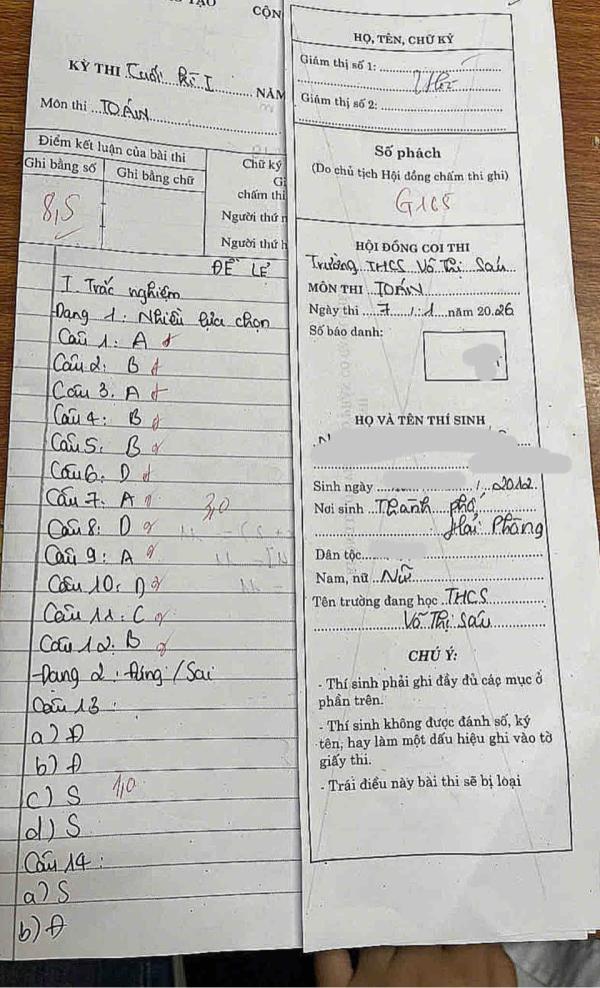 TẠO
CỘN
KỲ THI Cuối kì I
NĂM
Môn thi TOÁN
Điểm kết luận của bài thi
Ghi bằng số
Ghi bằng chữ
Chữ ký
chấm thi
Người thứ
Người thứ
8,5
ĐỀ LẺ
I. Trắc nghiệm
Dạng 1: Nhiều lựa chọn
Câu 1: A
Câu 2: B
Câu 3. A
Câu 4: B
Câu 5: B
Câu 6: D
Câu 7: A
3,0
Câu 8: D
Câu 9: A
Câu 10: D
Câu 11: C
Câu 12: B
Dạng 2: Đúng/Sai
Câu 13:
a) Đ
b) Đ
c) S
1,0
d) S
Câu 14:
a) S
b) Đ
HỌ, TÊN, CHỮ KÝ
Giám thị số 1:
Giám thị số 2:
Số phách
(Do chủ tịch Hội đồng chấm thi ghi)
G165
HỘI ĐỒNG COI THI
Trường THCS Võ Thị Sáu
MÔN THI TOÁN
Ngày thi 7 / 1 năm 2026
Số báo danh:
HỌ VÀ TÊN THÍ SINH
Sinh ngày / 2012
Nơi sinh Thành phố
Hải Phòng
Dân tộc
Nam, nữ Nữ
Tên trường đang học THCS
Võ Thị Sáu
CHÚ Ý:
- Thí sinh phải ghi đầy đủ các mục ở
phần trên.
- Thí sinh không được đánh số, ký
tên, hay làm một dấu hiệu ghi vào tờ
giấy thi.
- Trái điều này bài thi sẽ bị loại